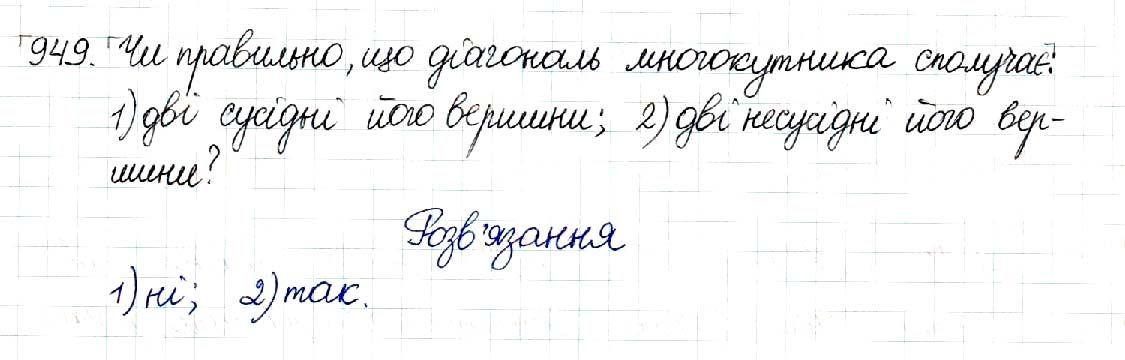 949. Чи правильно, що діагональ многокутника сполучає:
1) дві сусідні його вершини; 2) дві несусідні його вер-
шини?
Розв'язання
1) ні; 2) так.